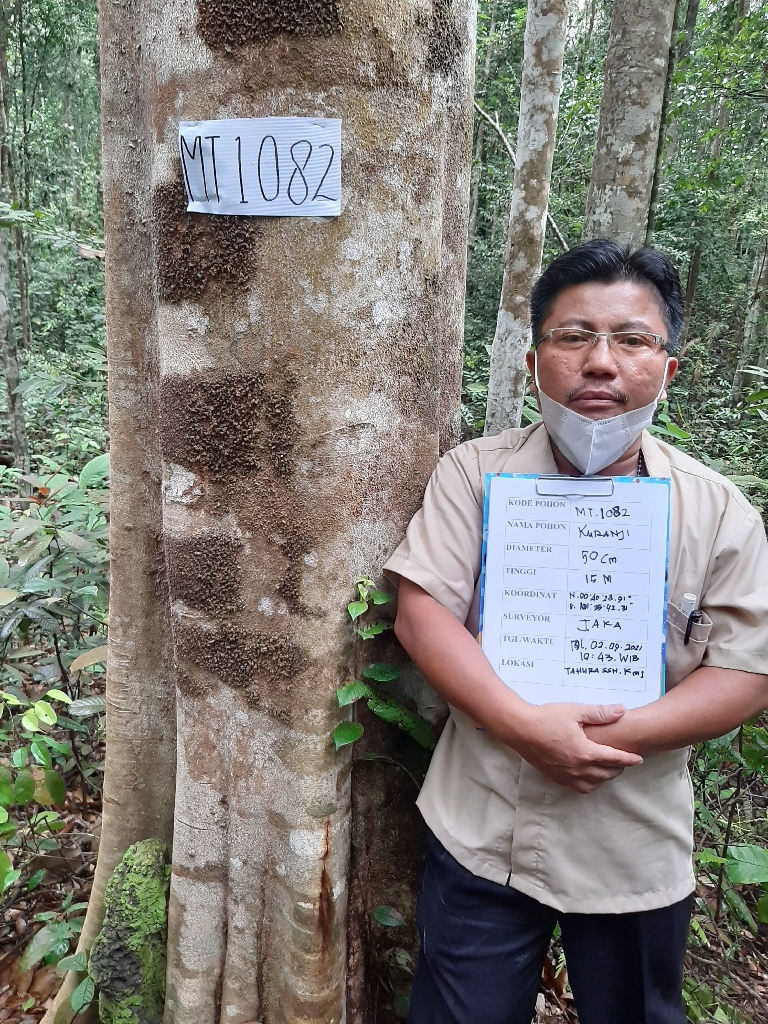 MT 1082
KODE POHON MT.1082
NAMA POHON KURANJI
DIAMETER 50 Cm
TINGGI 15 M
KOORDINAT
SURVEYOR JAKA
TGL/WAKTU TgL. 02.09.2021
10:43. WIB
LOKASI TAHURA SSH. Kmj